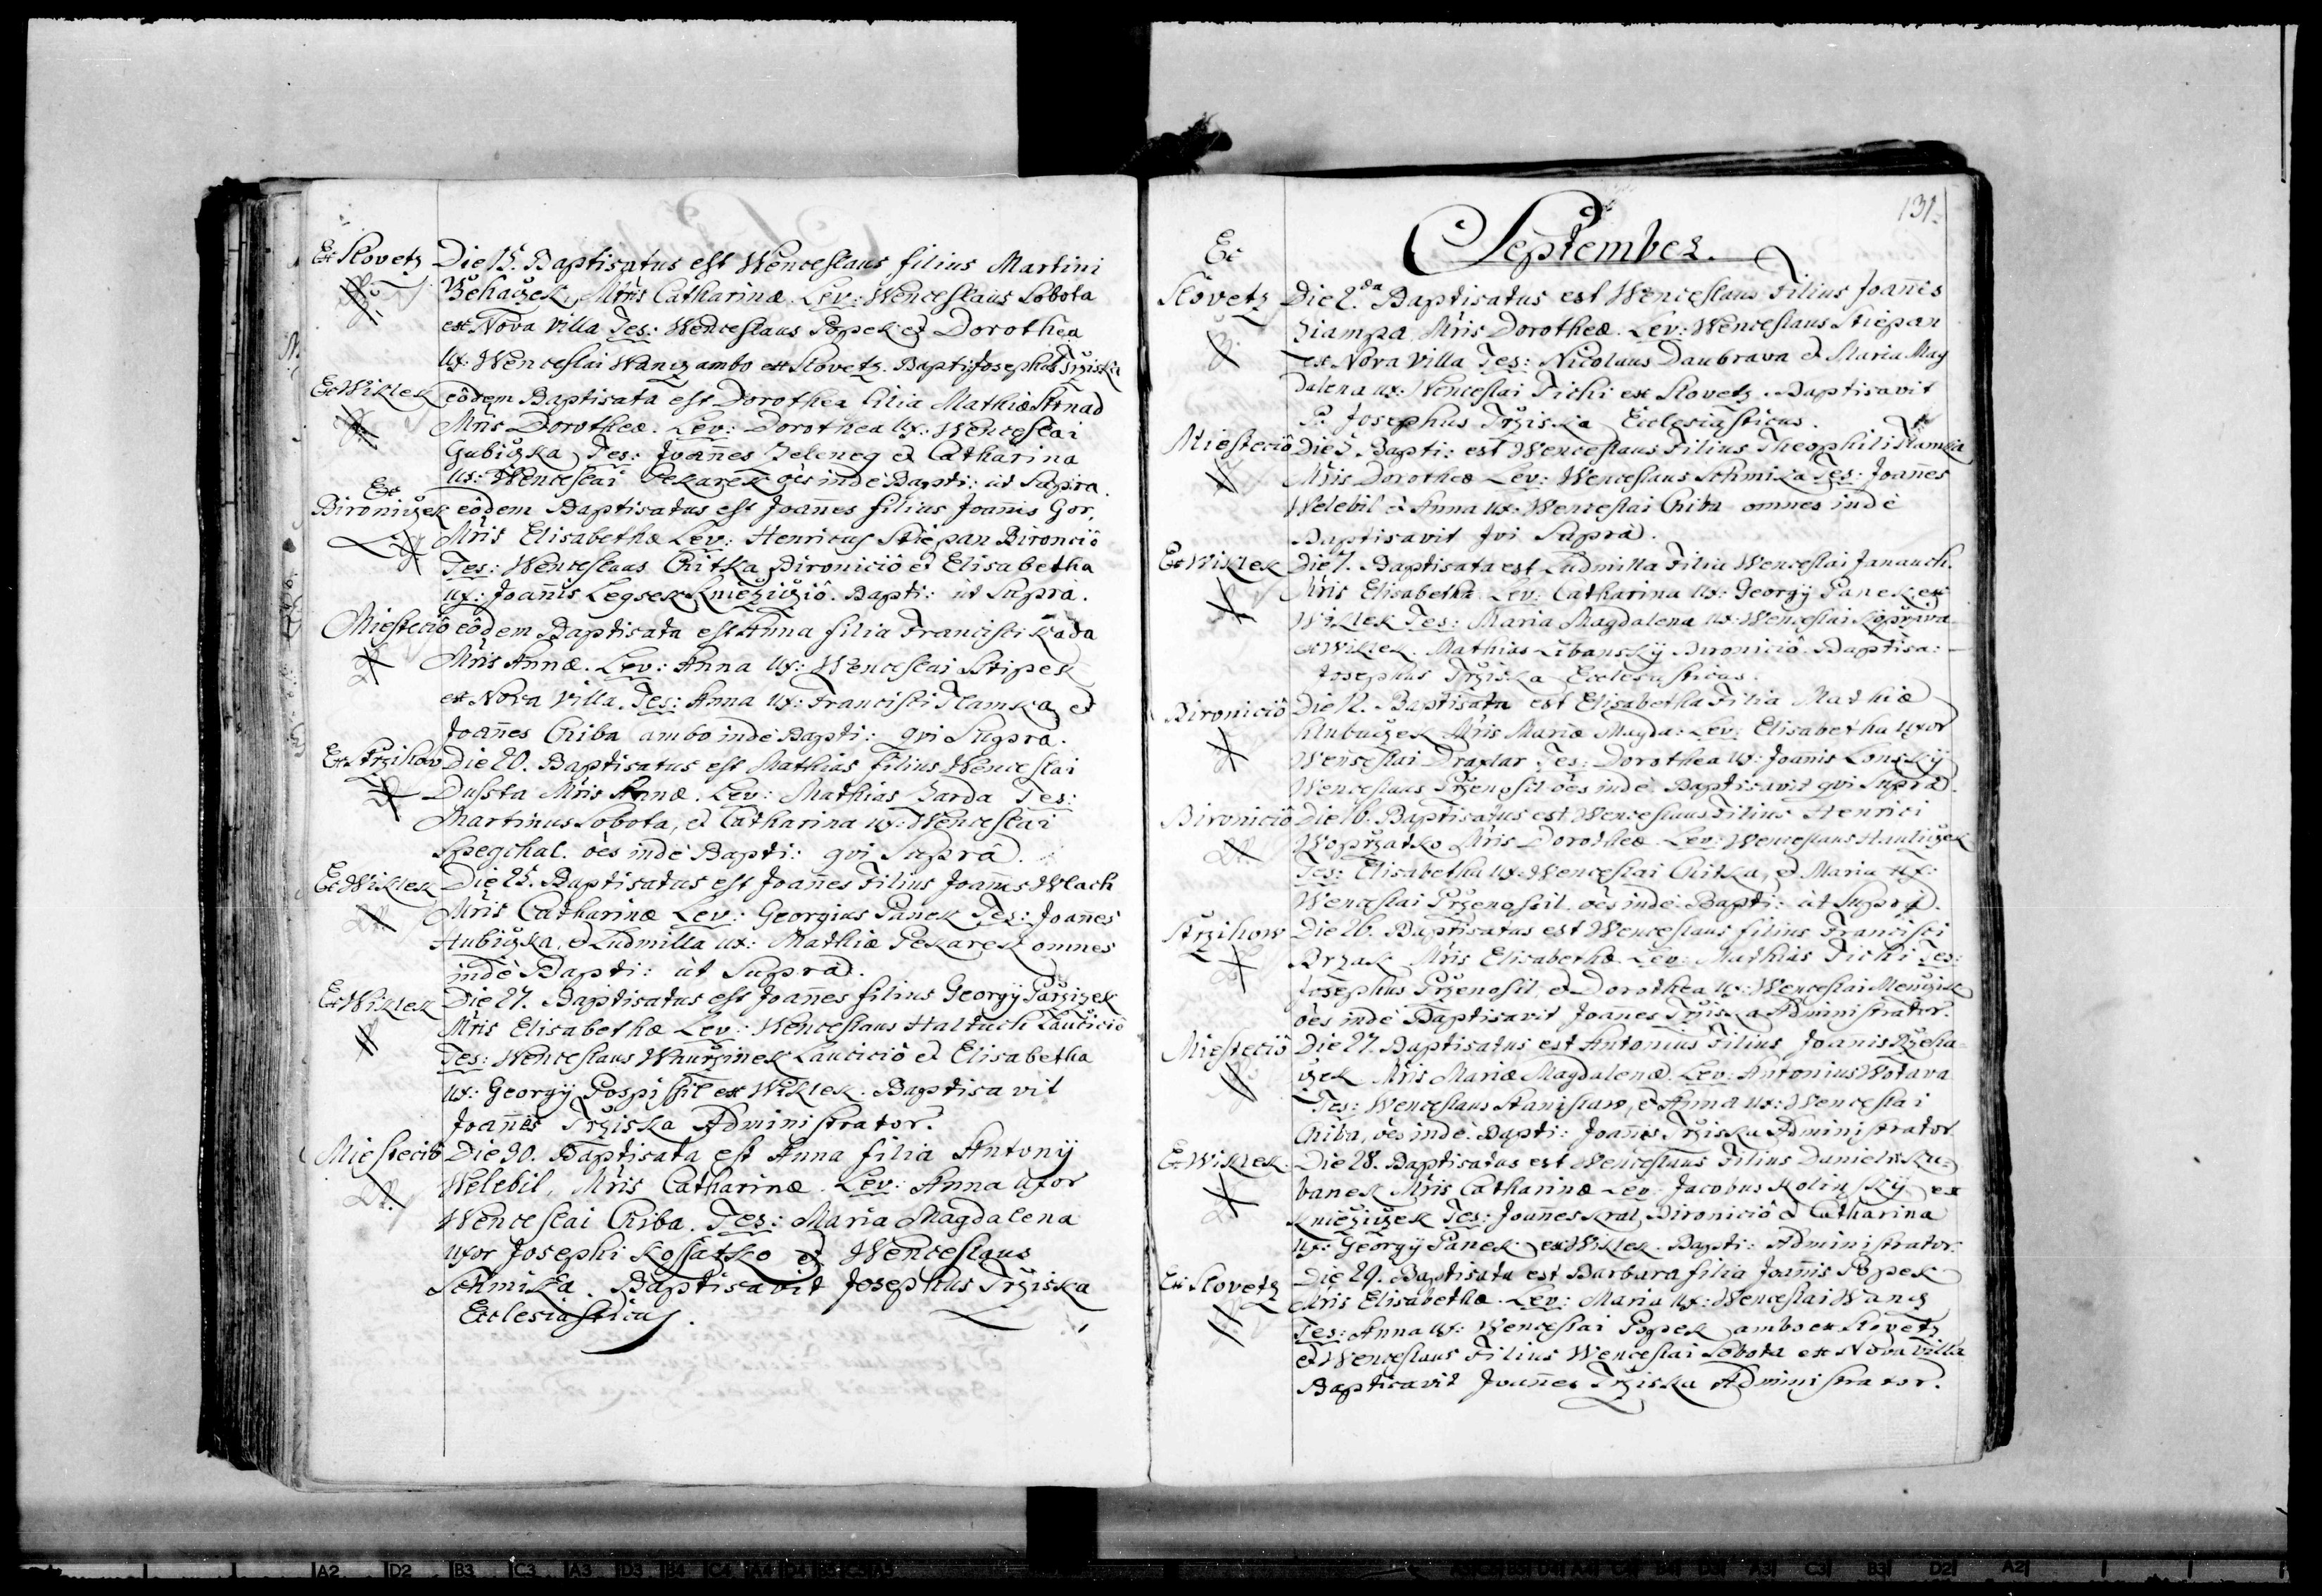 Ex Slovetz Die 15. Baptisatus est Wenceslaus filius Martini
Mris Catharinæ. Lev: Wenceslaus Sobota
ex Nova Villa Tes: Wenceslaus Popek et Dorothea
Ux: Wenceslai Wancz ambo ex Slovetz. Bapti: Josephus Trziska
Ex Wiklek eodem Baptisata est Dorothea filia Mathiæ Strnad
Mris Dorotheæ. Lev: Dorothea Ux: Wenceslai
Tes: Joañes et Catharina
Ux: Wenceslai Pekarek oès indè Bapti: ut Supra.
Ex
Bironiczek eodem Baptisatus est Joañes filius Joañis Gor,
Mris Elisabethæ Lev: Henricus Stiepan Bironciô
Tes: Wenceslaus Chitka Bironiciô et Elisabetha
ux: Joañis Legsek Knieziziô. Bapti: ut Supra.
Miesteciô eodem Baptisata est Anna filia Francisci Kada
Mris Annæ. Lev: Anna Ux: Wenceslai Stipek
ex Nova Villa. Tes: Anna Ux: Francisci Tlamka et
Joañes Chiba ambo indè Bapti: qvi Supra.
Ex Strzihov Die 20. Baptisatus est Mathias filius Wenceslai
Dussta Mris Annæ. Lev: Mathias Barda Tes:
Martinus Sobota, et Catharina Ux: Wenceslai
Spegchal. oès indè Bapti: qvi Suprà.
Ex Wiklek Die 25. Baptisatus est Joañes Filius Joañis Wlach
Mris Catharinæ Lev: Georgius Panek Tes: Joañes
Hubiczka, et Ludmilla ux: Mathiæ Pekarek omnes
indè Bapti: ùt Supra.
Ex Wiklek Die 27. Baptisatus est Joañes filius Georgÿ Parzizek
Mris Elisabethæ Lev: Wenceslaus Haltuch Lauciciô
Tes: Wenceslaus Lauciciô et Elisabetha
ux: Georgÿ Pospissil ex Wiklek. Baptisavit
Joañes Trziska Administrator.
Miesteciô Die 30. Baptisata est Anna filia Antonÿ
Welebil, Mris Catharinæ. Lev: Anna Uxor
Wenceslai Chiba. Tes: Maria Magdalena
uxor Josephi Kossatko et Wenceslaus
Sehmika. Baptisavit Josephus Trziska
Ecclesiasticus.
131.
September.
Ex
Slovetz Die 2.da Baptisatus est Wenceslaus Filius Joañes
Mris Dorotheæ. Lev: Wenceslaus Stiepan
ex Nova Villa Tes: Nicolaus Daubrava et Maria Mag
dalena ux: Wenceslai Tichi ex Slovetz. Baptisavit
P. Josephus Trziska Ecclesiasticus.
Miesteciô Die 5. Bapti: est Wenceslaus Filius Theophili Tlamka
Mris Dorotheæ Lev: Wenceslaus Sehmika Tes: Joañes
Welebil et Anna ux: Wenceslai Chiba omnes indè
Baptisavit qvi Suprà.
Ex Wiklek Die 7. Baptisata est Ludmilla Filia Wenceslai Janauch.
Mris Elisabetha Lev: Catharina Ux: Georgÿ Panek ex
Wiklek Tes: Maria Magdalena ux: Wenceslai Koprziva
ex Wiklek. Mathias Libanskÿ Bironiciô. Baptisa:
Josephus Trziska Ecclesiasticus.
Bironiciô Die 12. Baptisata est Elisabetha Filia Mathiæ
Klubuczek Mris Mariæ Magda: Lev: Elisabetha uxor
Wenceslai Draxlar Tes: Dorothea ux: Joañis Lonskÿ
Wenceslaus Przenosil oès indè Baptisavit qvi Suprà.
Bironiciô Die 16. Baptisatus est Wenceslaus Filius Henrici
Woprzatko Mris Dorotheæ Lev: Wenceslaus Hauliczek
Tes: Elisabetha ux: Wenceslai Chitka, et Maria ux:
Wenceslai Przenossil. oès indè Bapti: ùt Supra.
Strzihow Die 26. Baptisatus est Wenceslaus filius Francisci
Brzak Mris Elisabethæ Lev: Mathias Tichi Tes:
Josephus Przenosil, et Dorothea ux: Wenceslai
oès indè Baptisavit Joañes Trziska Administrator.
Miesteciô Die 27. Baptisatus est Antonius Filius Joanis Rzeha
czek Mris Mariæ Magdalenæ. Lev: Antonius Wotava
Tes: Wenceslaus Stanislaw, et Anna ux: Wenceslai
Chiba, oès indè. Bapti: Joañes Trziska Administrator
Ex Wiklek Die 28. Baptisatus est Wenceslaus Filius Danielis Ku=
banek Mris Catharinæ Lev: Jacobus Kolinskÿ ex
Knieziczek Tes: Joañes Kral Bironiciô et Catharina
ux: Georgÿ Panek ex Wiklek. Bapti: Administrator.
Ex Slovetz Die 29. Baptisata est Barbara filia Joañis Popek
Mris Elisabethæ. Lev: Maria ux: Wenceslai Wancz
Tes: Anna ux: Wenceslai Popek ambo ex Slovetz
et Wenceslaus Filius Wenceslai Sobota ex Nova Villa
Baptisavit Joañes Trziska Administrator.